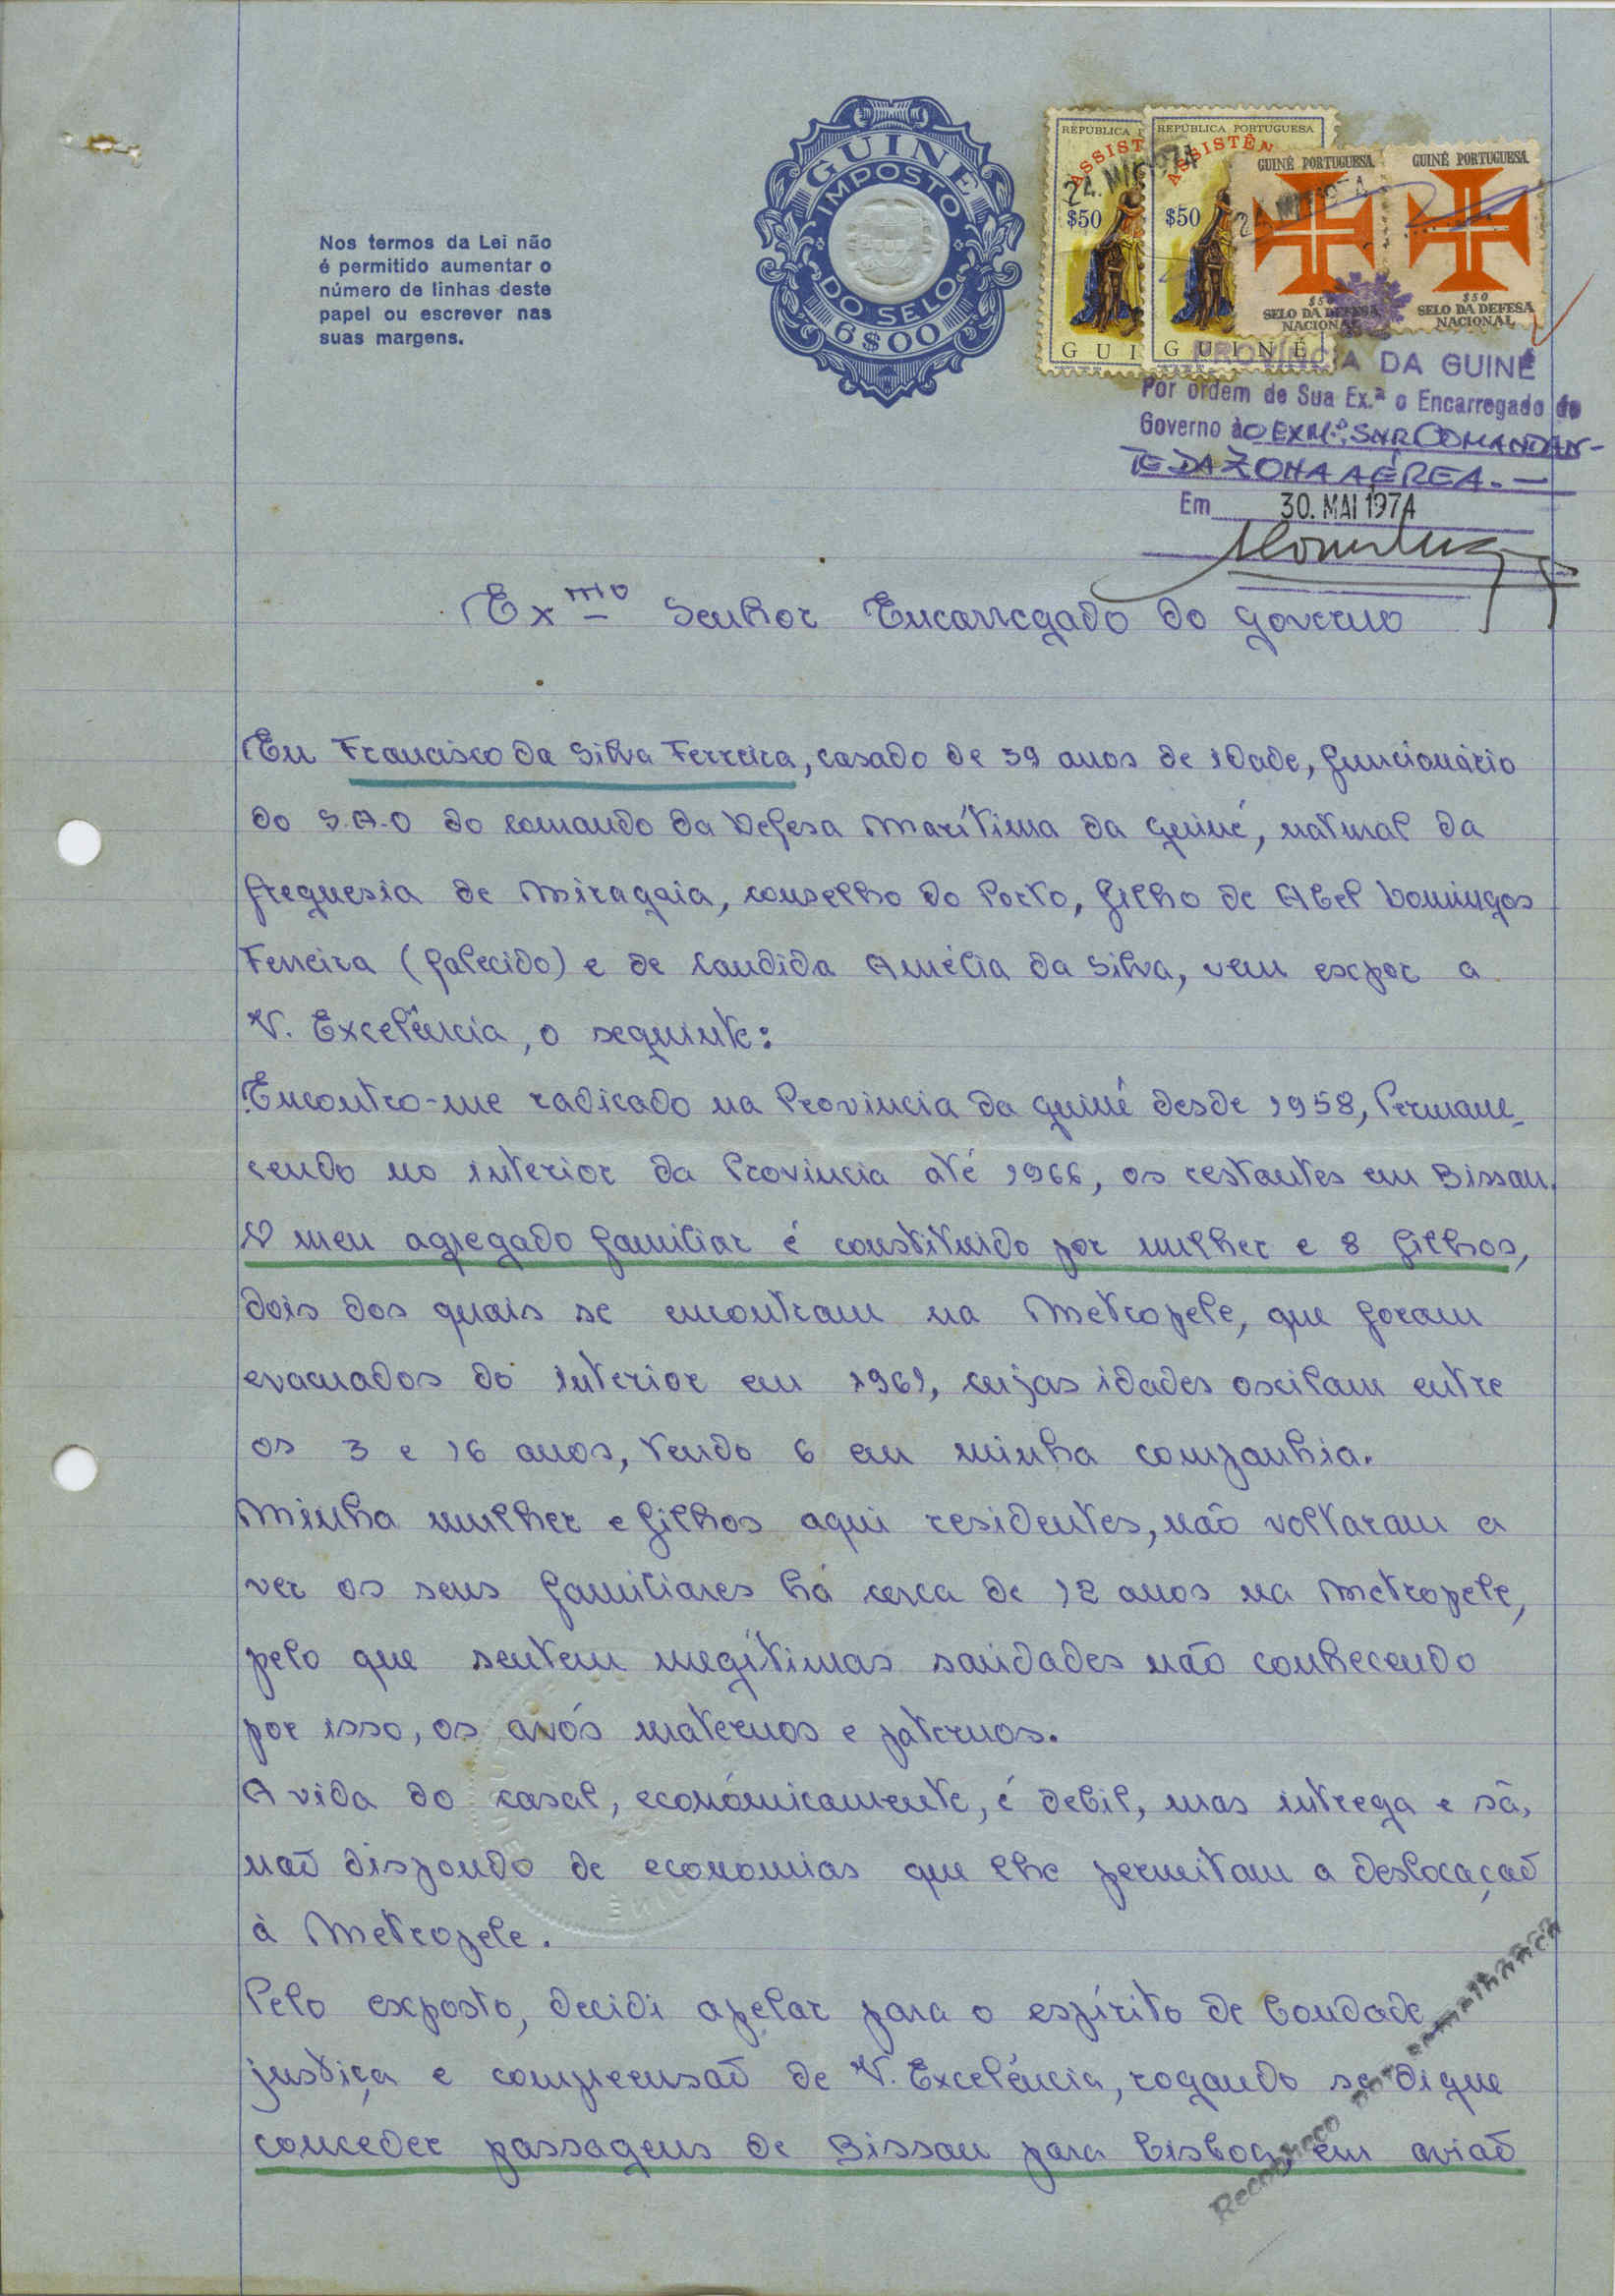 Nos termos da Lei não
é permitido aumentar o
número de linhas deste
papel ou escrever nas
suas margens.
GUINÉ
IMPOSTO
DO SELO
6$00
REPÚBLICA
ASSIST
24. MAI 1974
$50
GUI
REPÚBLICA PORTUGUESA
ASSISTÊN
$50
GUINÉ
GUINÉ PORTUGUESA
$50
SELO DA DEFESA
NACIONAL
GUINÉ PORTUGUESA
$50
SELO DA DEFESA
NACIONAL
PROVÍNCIA DA GUINÉ
Por ordem de Sua Ex.ª o Encarregado do
Governo ao EXMº. SNR COMANDAN-
TE DA ZONA AÉREA. —
Em 30. MAI 1974
Exmo Senhor Encarregado do Governo
Eu Francisco da Silva Ferreira, casado de 39 anos de idade, funcionário
do S.A.O do Comando da Defesa Marítima da Guiné, natural da
freguesia de Miragaia, conselho do Porto, filho de Abel Domingos
Ferreira (falecido) e de Candida Amélia da Silva, vem expor a
V. Excelência, o seguinte:
Encontro-me radicado na Provincia da Guiné desde 1958, Permane_
cendo no interior da Provincia até 1966, os restantes em Bissau.
O meu agregado familiar é constituido por mulher e 8 filhos,
dois dos quais se encontram na Metropele, que foram
evacuados do interior em 1961, cujas idades oscilam entre
os 3 e 16 anos, tendo 6 em minha companhia.
Minha mulher e filhos aqui residentes, não voltaram a
ver os seus familiares há cerca de 12 anos na Metropele,
pelo que sentem megítimas saudades não conhecendo
por isso, os avós maternos e paternos.
A vida do casal, económicamente, é debil, mas intrega e sã,
não dispondo de economias que lhe permitam a deslocação
à Metropele.
Pelo exposto, decidi apelar para o espírito de bondade
justiça e compreensão de V. Excelência, rogando se digne
conceder passagens de Bissau para Lisboa, em avião
Reconheço por semelhança